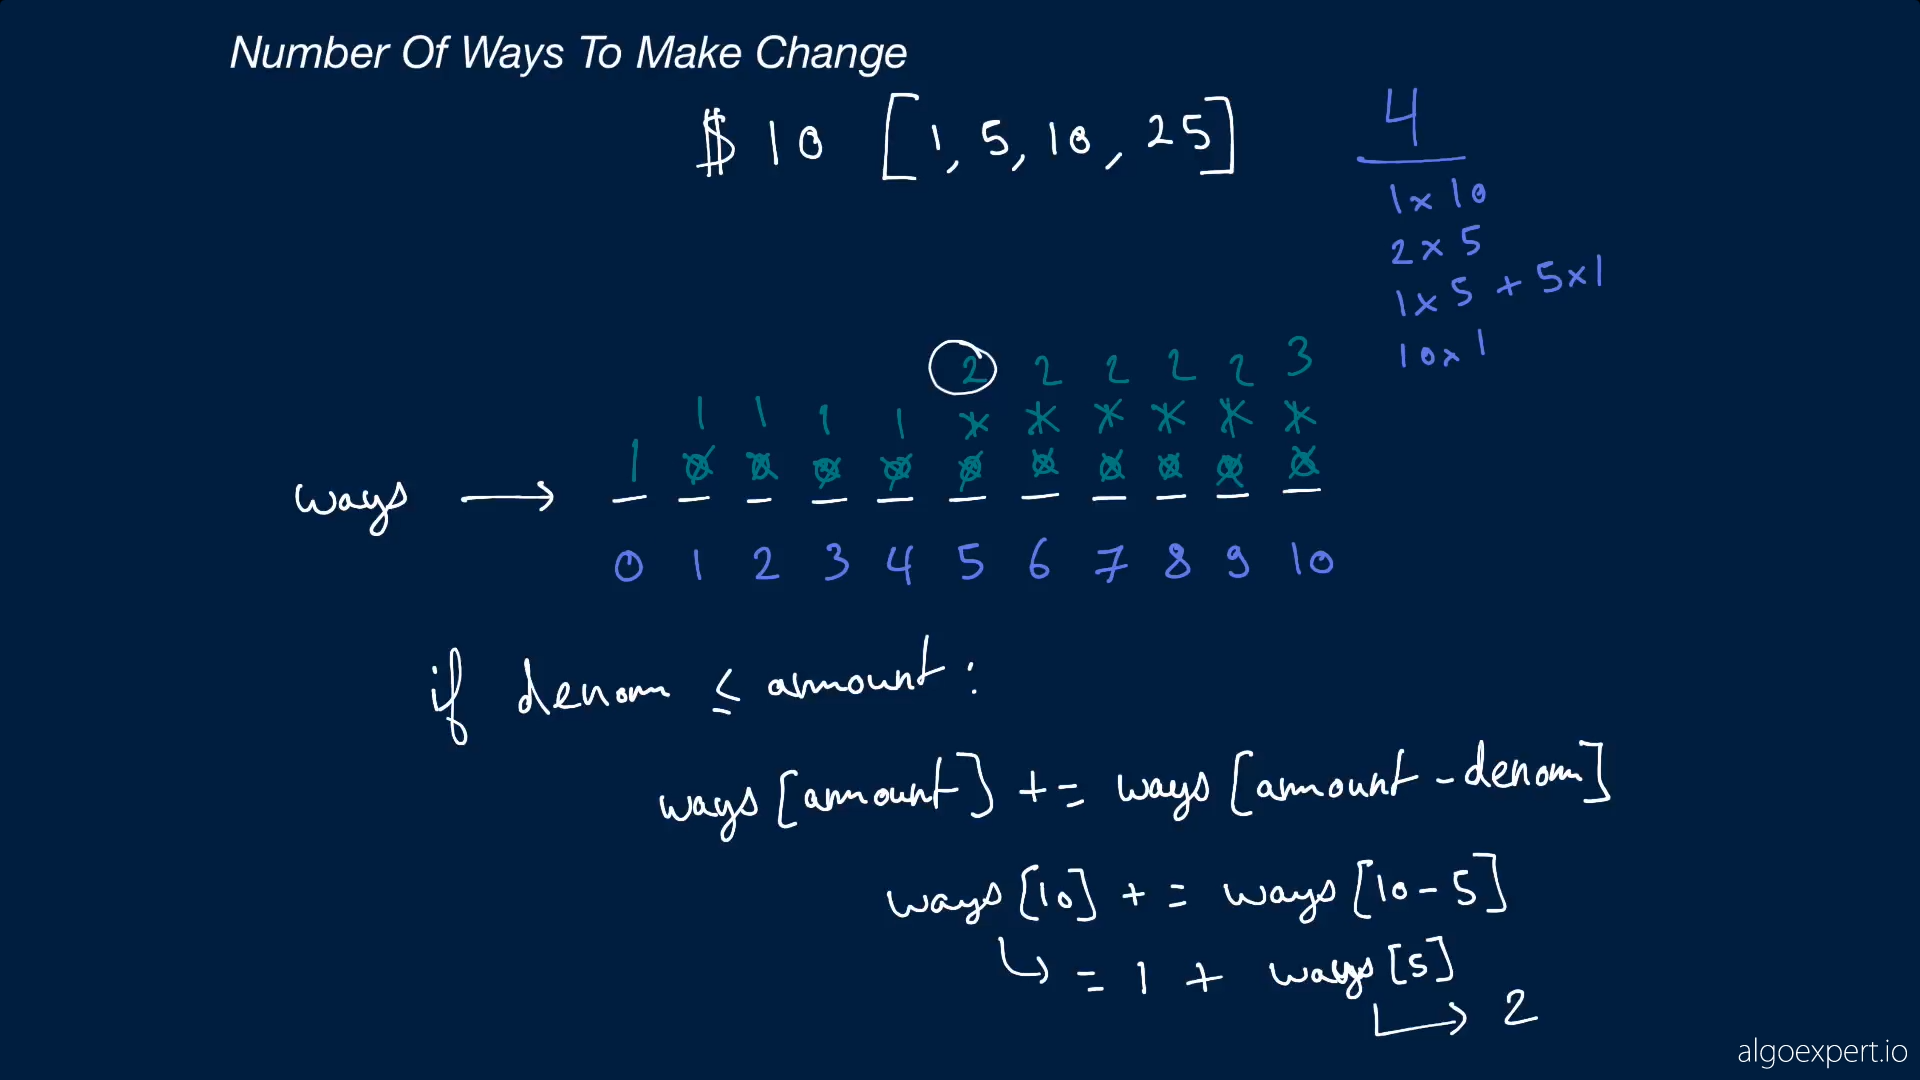 Number Of Ways To Make Change
$ 10 [1, 5, 10, 25]
4
1x10
2x5
1x5 + 5x1
10x1
2 2 2 2 2 3
1 1 1 1 x x x x x x
1 0 0 0 0 0 0 0 0 0 0
ways →
0 1 2 3 4 5 6 7 8 9 10
if denom ≤ amount:
ways[amount] += ways[amount-denom]
ways[10] += ways[10-5]
↳ = 1 + ways[5]
↳ 2
algoexpert.io